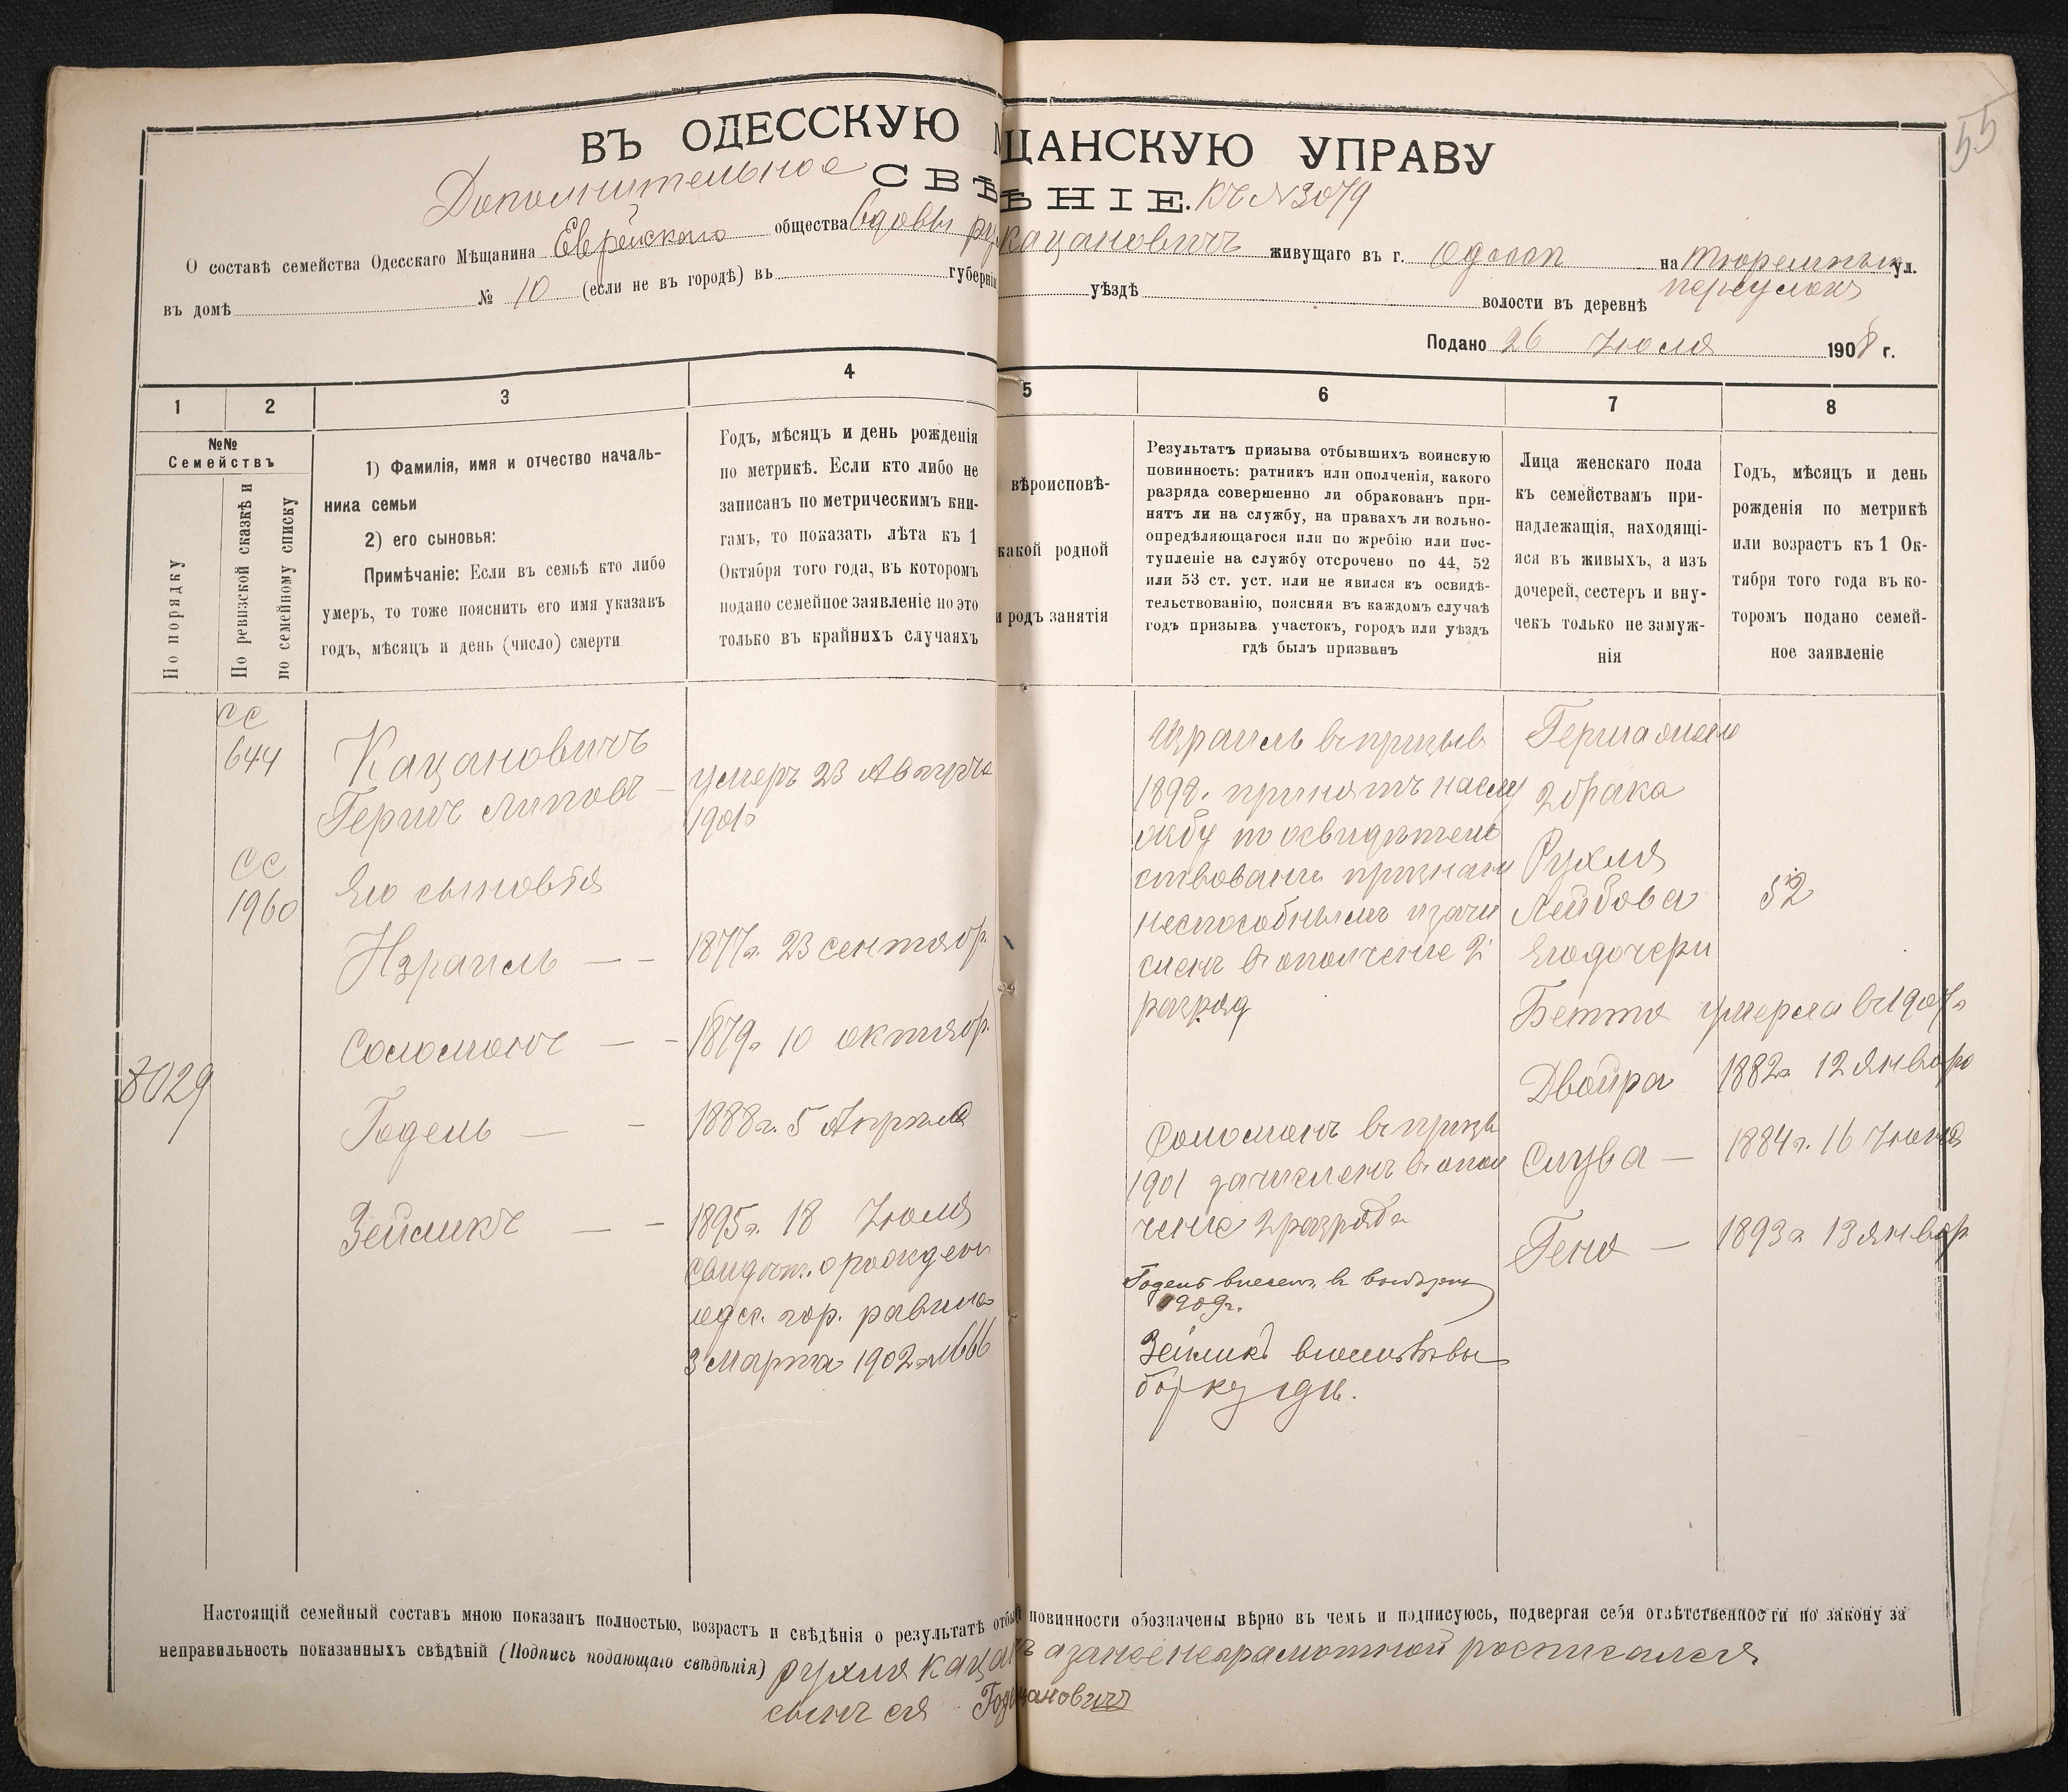 55
ВЪ ОДЕССКУЮ МЩАНСКУЮ УПРАВУ
Дополнительное СВѢНІЕ. къ №3079
О составѣ семейства Одесскаго Мѣщанина Еврейского общества вдовы Кацановичъ живущаго въ г. Одессѣ на Тюремнымъ ул.
въ домѣ № 10 (если не въ городѣ) въ губерніи уѣздѣ волости въ деревнѣ переулокъ
Подано 26 Июля 1908 г.
1 2 3 4 5 6 7 8
№№
Семействъ
По порядку
По ревизской сказкѣ и
по семейному списку
1) Фамилія, имя и отчество началь-
ника семьи
2) его сыновья:
Примѣчаніе: Если въ семьѣ кто либо
умеръ, то тоже пояснить его имя указавъ
годъ, мѣсяцъ и день (число) смерти
Годъ, мѣсяцъ и день рожденія
по метрикѣ. Если кто либо не
записанъ по метрическимъ кни-
гамъ, то показать лѣта къ 1
Октября того года, въ которомъ
подано семейное заявленіе но это
только въ крайнихъ случаяхъ
вѣроисповѣ-
какой родной
и родъ занятія
Результатъ призыва отбывшихъ воинскую
повинность: ратникъ или ополченія, какого
разряда совершенно ли обракованъ при-
нятъ ли на службу, на правахъ ли вольно-
опредѣляющагося или по жребію или пос-
тупленіе на службу отсрочено по 44, 52
или 53 ст. уст. или не явился къ освидѣ-
тельствованію, поясняя въ каждомъ случаѣ
годъ призыва участокъ, городъ или уѣздъ
гдѣ былъ призванъ
Лица женскаго пола
къ семействамъ при-
надлежащія, находящі-
яся въ живыхъ, а изъ
дочерей, сестеръ и вну-
чекъ только не замуж-
нія
Годъ, мѣсяцъ и день
рожденія по метрикѣ
или возрастъ къ 1 Ок-
тября того года въ ко-
торомъ подано семей-
ное заявленіе
СС
644
СС
1960
3029
Кацановичъ
Гершъ Липовъ —
Его сыновья
Израиль — —
Соломонъ — —
Годель — —
Зейликъ — —
умеръ 23 Августа
1901г
1877г. 23 сентябр.
1879г. 10 октябр.
1888г. 5 Апреля
1895г. 18 Июля
свидѣт. о рожден
одес. гор. равина
3 Марта 1902 г №666
Израиль въ призыв
1898. принятъ на слу
жбу по освидѣтель
ствовании признанъ
неспособнымъ и зачи
сленъ въ ополчение 2
разряд
Соломонъ въ призы
1901 зачисленъ въ опол
чение 2 разряда
Годель внесен. в
1909г.
Зейликъ внесенъ въ вы
борку
Герша жена
2 брака
Рухля
Лейбова 52
Его дочери
Бетта умерла въ 1907г
Двойра 1882г. 12 января
Слува — 1884г. 16 Июня
Геня — 1893г 13 январ
Настоящій семейный составъ мною показанъ полностью, возрастъ и свѣдѣнія о результатѣ отбы повинности обозначены вѣрно въ чемъ и подписуюсь, подвергая себя отвѣтственности по закону за
неправильность показанныхъ свѣдѣній (Подпись подающаго свѣдѣнія) Рухля Кацан а за нее неграмотной росписался
сынъ ея Год цановичъ